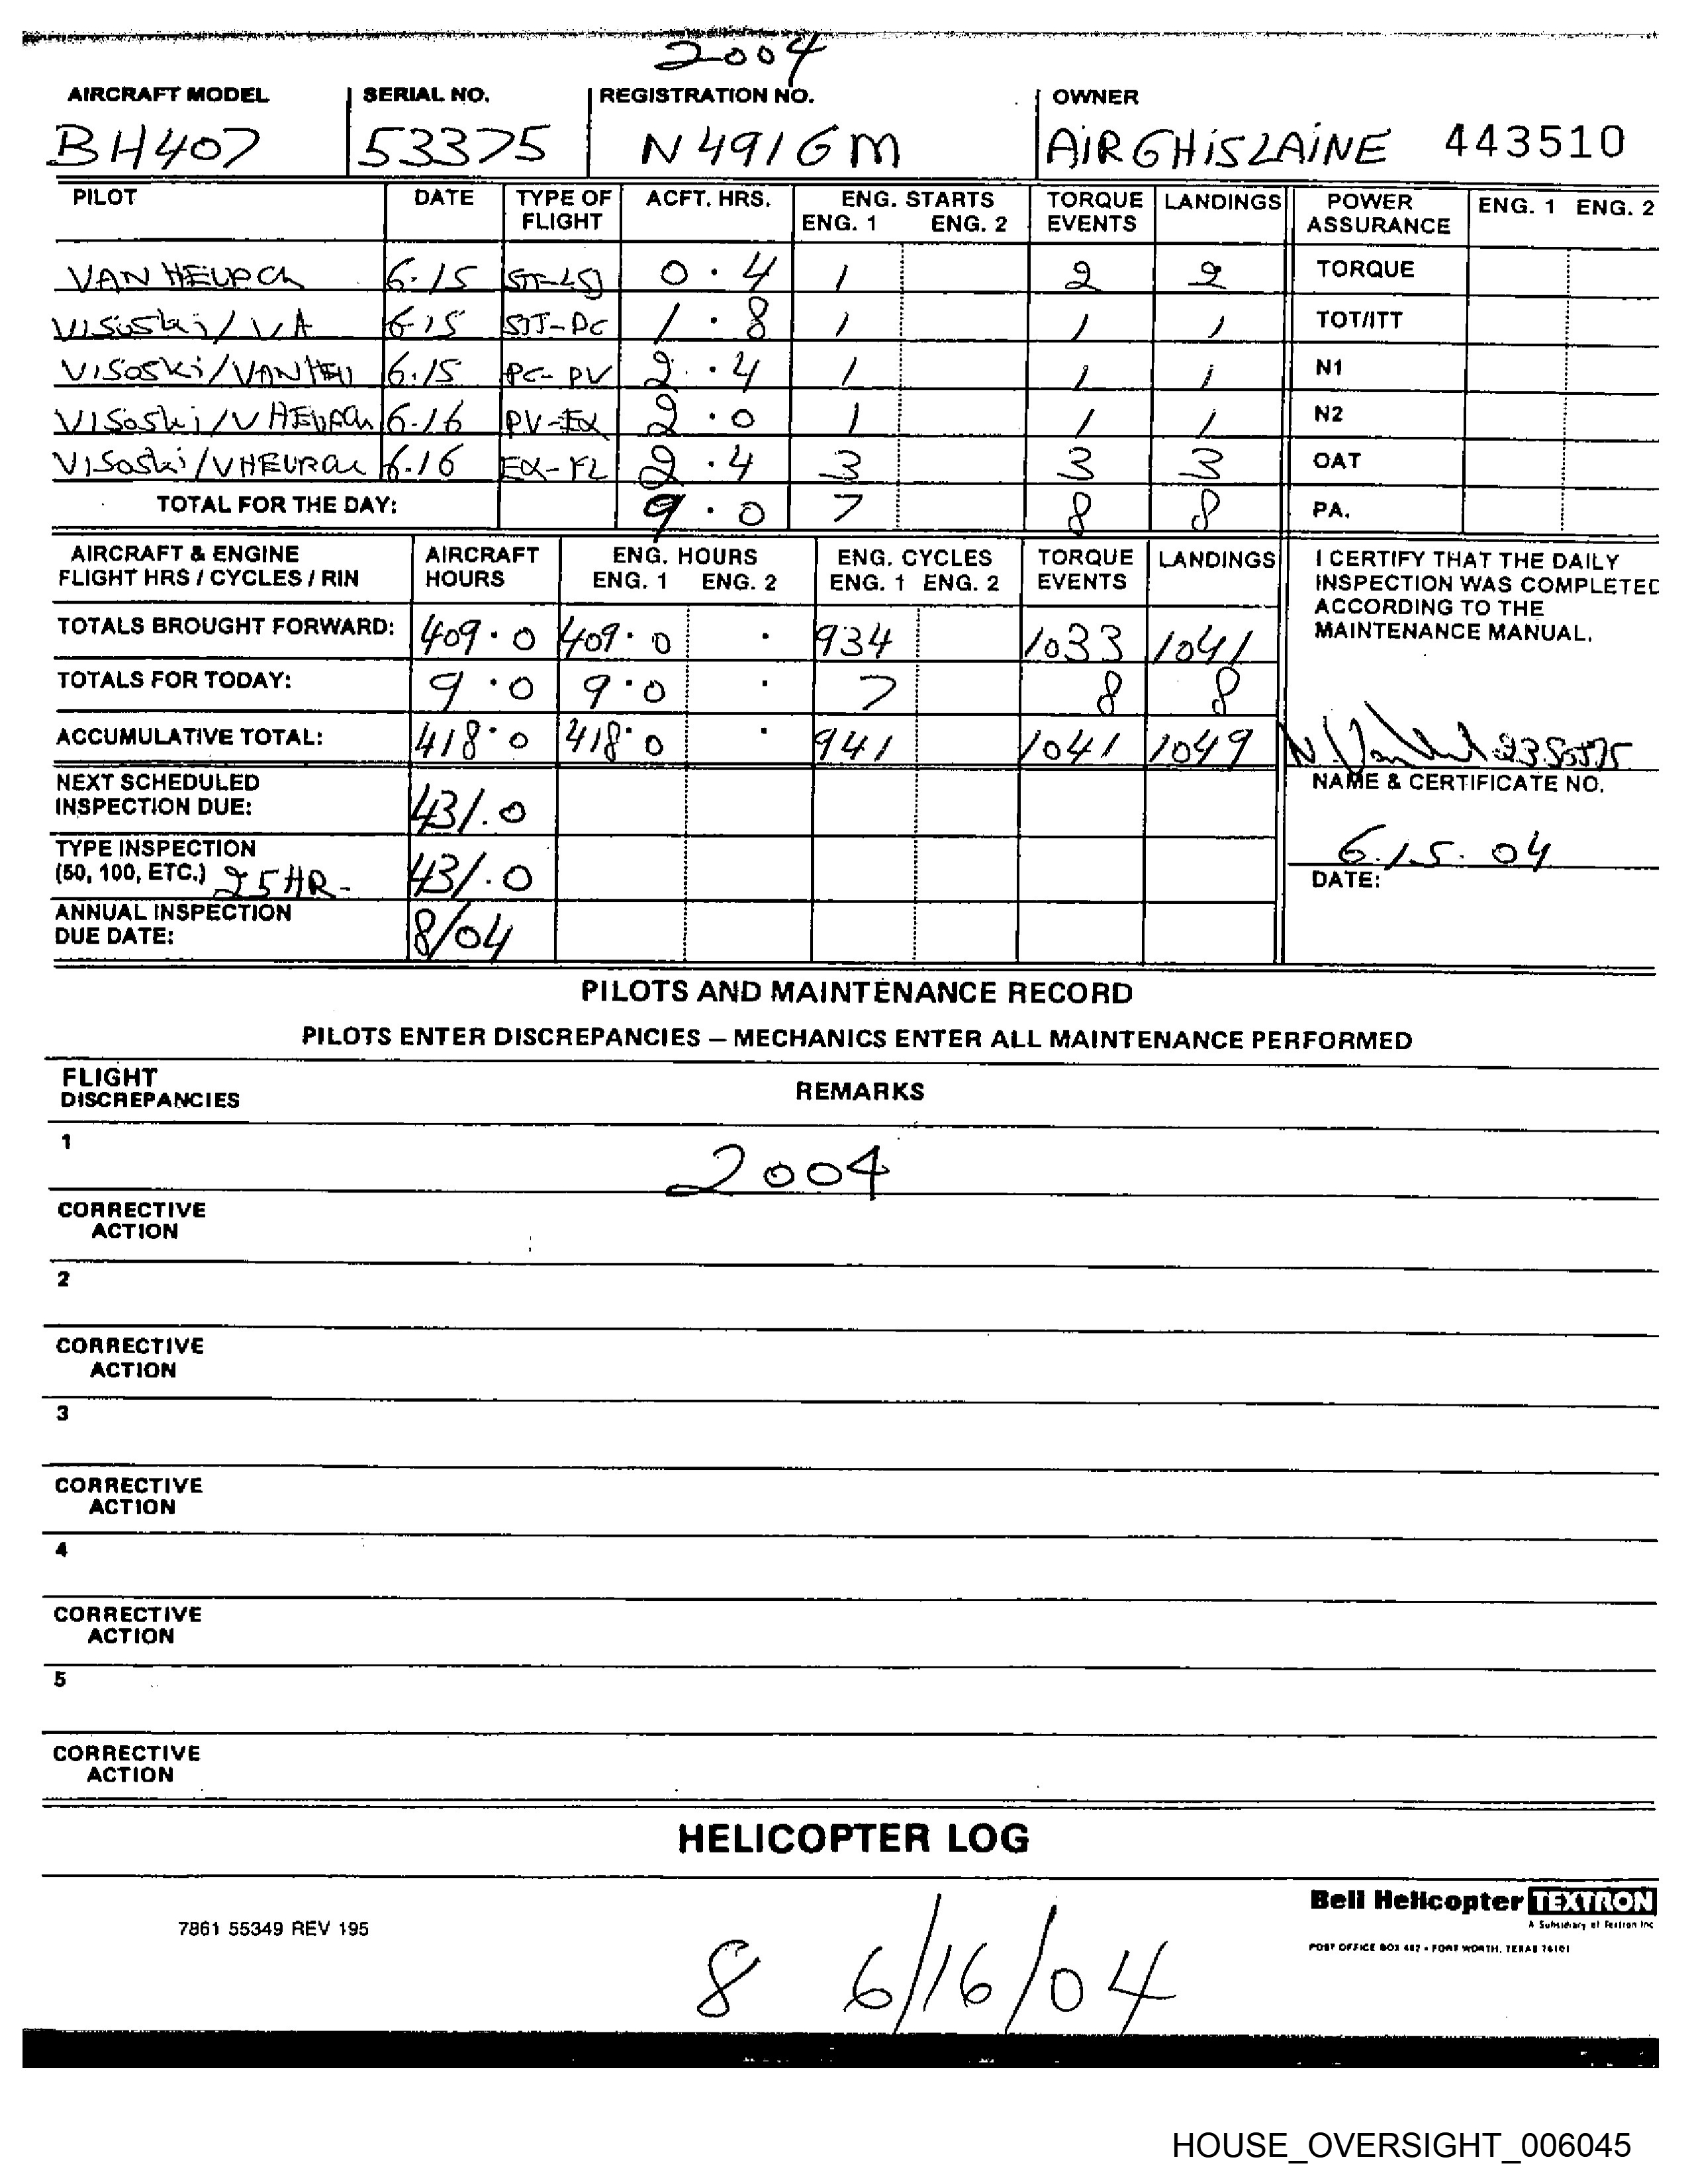 2004
AIRCRAFT MODEL SERIAL NO. REGISTRATION NO. OWNER
BH407 53375 N491GM AiRGHiSLAiNE 443510
PILOT DATE TYPE OF FLIGHT ACFT. HRS. ENG. STARTS ENG. 1 ENG. 2 TORQUE EVENTS LANDINGS POWER ASSURANCE ENG. 1 ENG. 2
VAN 6.15 0.4 1 2 2 TORQUE
Visoski/VA 6.15 1.8 1 1 1 TOT/ITT
Visoski/VAN 6.15 PC-PV 2.4 1 1 1 N1
Visoski/V 6.16 2.0 1 1 1 N2
Visoski/ 6.16 2.4 3 3 3 OAT
TOTAL FOR THE DAY: 9.0 7 8 8 PA.
AIRCRAFT & ENGINE FLIGHT HRS / CYCLES / RIN AIRCRAFT HOURS ENG. HOURS ENG. 1 ENG. 2 ENG. CYCLES ENG. 1 ENG. 2 TORQUE EVENTS LANDINGS
I CERTIFY THAT THE DAILY
INSPECTION WAS COMPLETED
ACCORDING TO THE
MAINTENANCE MANUAL.
TOTALS BROUGHT FORWARD: 409.0 409.0 . 934 1033 1041
TOTALS FOR TODAY: 9.0 9.0 . 7 8 8
ACCUMULATIVE TOTAL: 418.0 418.0 . 941 1041 1049
NAME & CERTIFICATE NO.
NEXT SCHEDULED
INSPECTION DUE: 431.0
TYPE INSPECTION
(50, 100, ETC.) 25HR- 431.0
6.15.04
DATE:
ANNUAL INSPECTION
DUE DATE: 8/04
PILOTS AND MAINTENANCE RECORD
PILOTS ENTER DISCREPANCIES – MECHANICS ENTER ALL MAINTENANCE PERFORMED
FLIGHT
DISCREPANCIES REMARKS
1
2004
CORRECTIVE
ACTION
2
CORRECTIVE
ACTION
3
CORRECTIVE
ACTION
4
CORRECTIVE
ACTION
5
CORRECTIVE
ACTION
HELICOPTER LOG
Bell Helicopter TEXTRON
A Subsidiary of Textron Inc
7861 55349 REV 195
POST OFFICE BOX 482 • FORT WORTH, TEXAS 76101
8 6/16/04
HOUSE_OVERSIGHT_006045